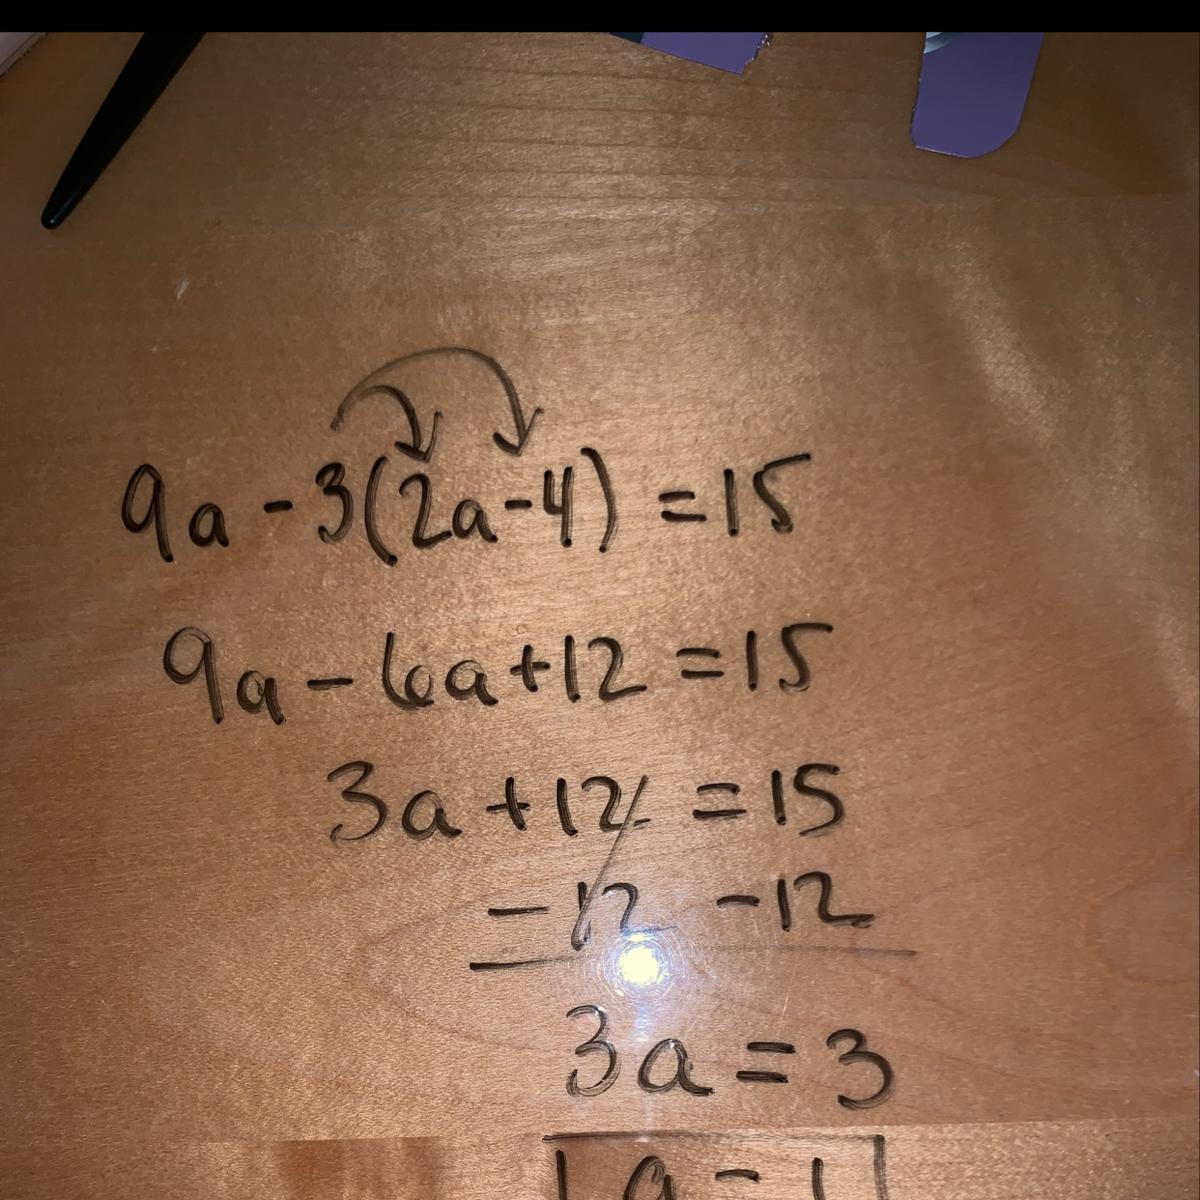 9a - 3(2a-4) = 15
9a - 6a + 12 = 15
3a + 12 = 15
- 12 - 12
3a = 3
a = 1